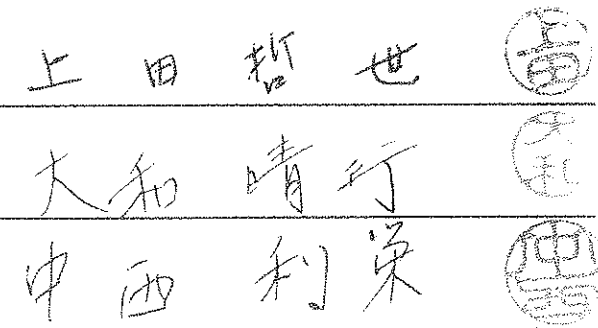 上田 哲世 上田
大和 晴行 大和
中西 利栄 中西